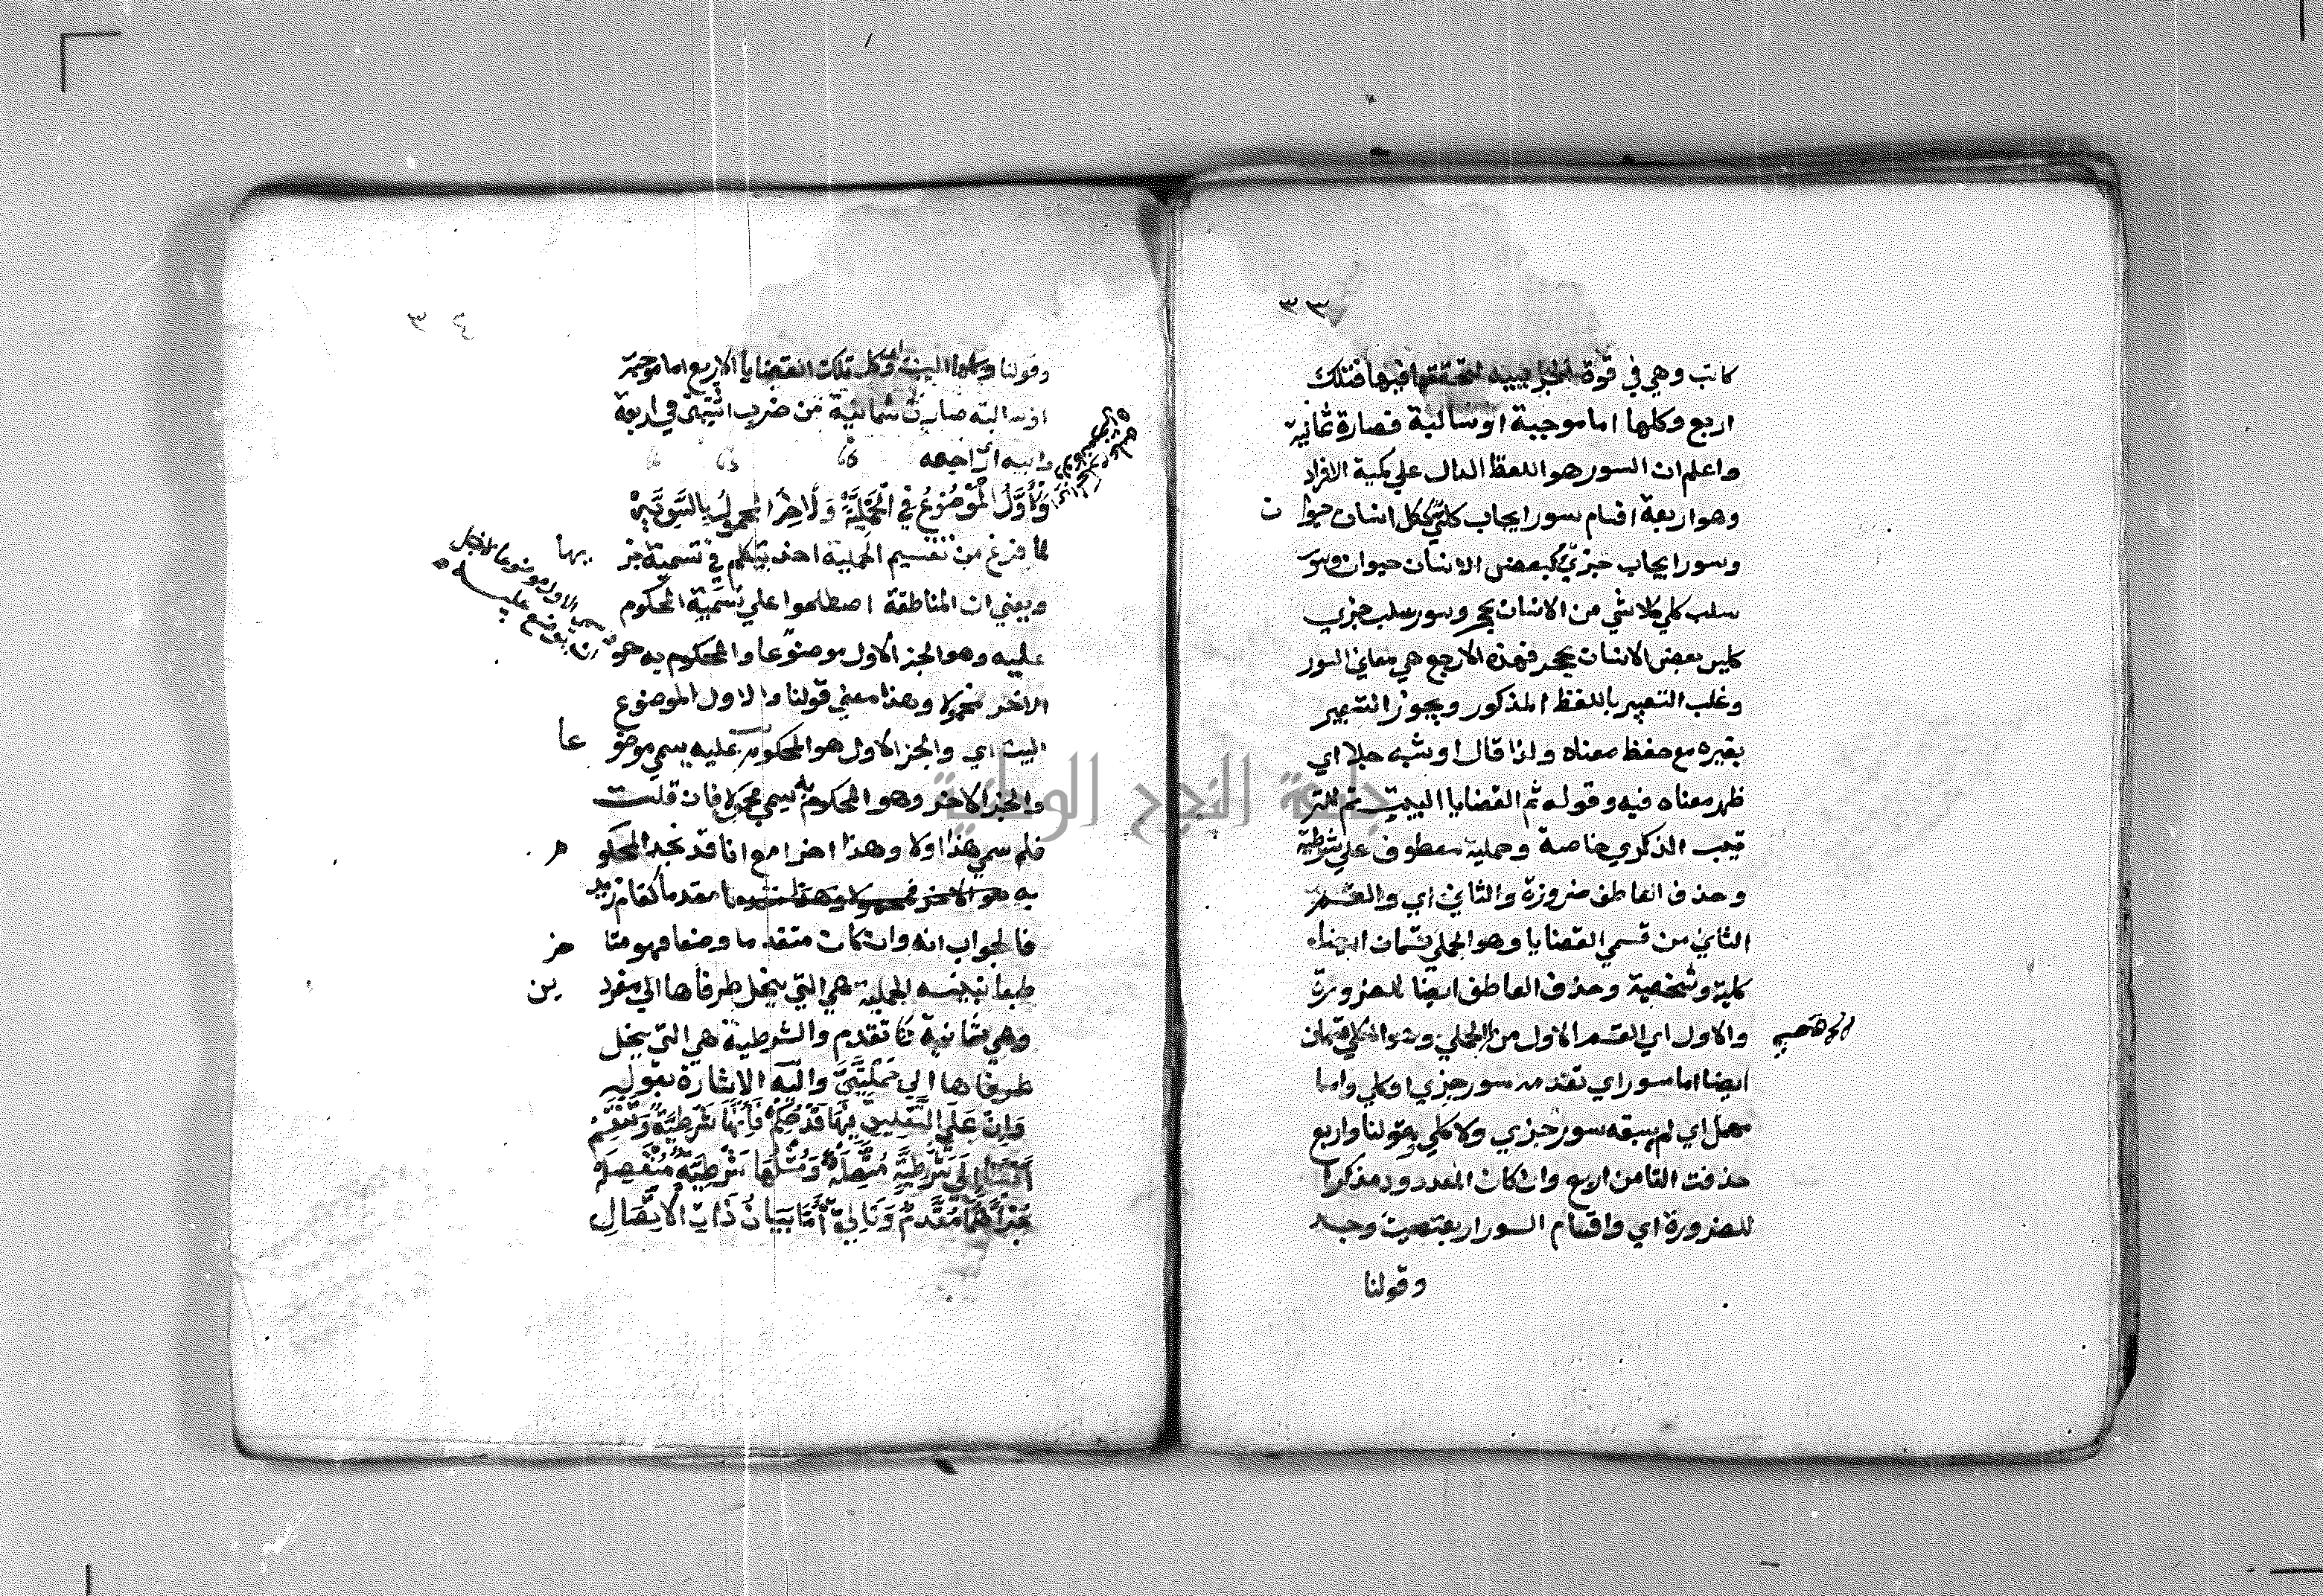 ٣٣
كاتب وهي في قوة الجزييه لتحققها فيها فتلك
اربع وكلها اما موجبة او سالبة فصارة ثمانية
واعلم ان السور هو اللفظ الدال علي كمية الافراد
وهو اربعة اقسام سور ايجاب كلي ككل انسان حيوان
وسور ايجاب جزئي كبعض الانسان حيوان وسور
سلب كلي كلا شي من الانسان بحجر وسور سلب جزي
كليس بعض الانسان بحجر فهذه الاربع هي معاني السور
وغلب التعبير باللفظ المذكور ويجوز التعبير
بغيره مع حفظ معناه ولذا قال او شبه جلا اي
ظهر معناه فيه وقوله ثم القضايا البيت ثم للتر
تيب الذكري خاصة وحملية معطوف علي شرطية
وحذف العاطف ضرورة والثاني اي والقسم
الثاني من قسمي القضايا وهو الحملي قسمان ايضا
كلية وشخصية وحذف العاطف ايضا للضرورة
والاول اي القسم الاول من الحملي وهو الكلي قسمان
ايضا اما سور اي تقدمه سور جزي او كلي واما
مهمل اي لم يسبقه سور جزي ولا كلي وقولنا واربع
حذفت التا من اربع وان كان المعدود مذكرا
للضرورة اي واقسام السور اربعة حيث وجد
وقولنا
٣٤
وقولنا وكلها البيت اي وكل تلك القضايا الاربع اما موجبة
او سالبة صارت ثمانية من ضرب اثنين في اربعة
واليه اي راجعه
وَالأَوَّلُ المَوْضُوعُ فِي الْحَمْلِيَّةِ وَالآخِرُ المحمولُ بِالسَّوِيَّةِ
لما فرغ من تقسيم الحملية اخذ يتكلم في تسمية جز
يها
ويعني ان المناطقة اصطلحوا علي تسمية المحكوم
عليه وهو الجز الاول موضوعا والمحكوم به هو
الاخر محمولا وهذا معني قولنا والاول الموضوع
البيت اي والجز الاول هو المحكوم عليه يسمي موضو
عا
والجز الاخر وهو المحكوم به يسمي محمولا فان قلت
فلم سمي هذا اولا وهذا اخرا مع انا قد نجد المحكو
م
به هو الاخر محمولا وهذا مقدما كقام زيد
فالجواب انه وان كان متقدما وضعا فهو متا
خر
طبعا تنبيه الحملية هي التي ينحل طرفاها الي مفرد
ين
وهي ثمانية كما تقدم والشرطية هي التي ينحل
طرفاها الي حمليتين واليه الاشارة بقوله
وَاِنْ عَلَي التَّعْلِيقِ فِيهَا قَدْ حُكِمْ فَاِنَّهَا شَرْطِيَّةٌ وَتَنْقَسِمُ
اَيْضًا اِلَي شَرْطِيَّةٍ مُتَّصِلَهْ وَمِثْلُهَا شَرْطِيَّةٌ مُنْفَصِلَهْ
جُزْآهُمَا مُقَدَّمٌ وَتَالِي اَمَّا بَيَانُ ذَاتِ الاِتِّصَالِ
جامعة النجاح الوطنية